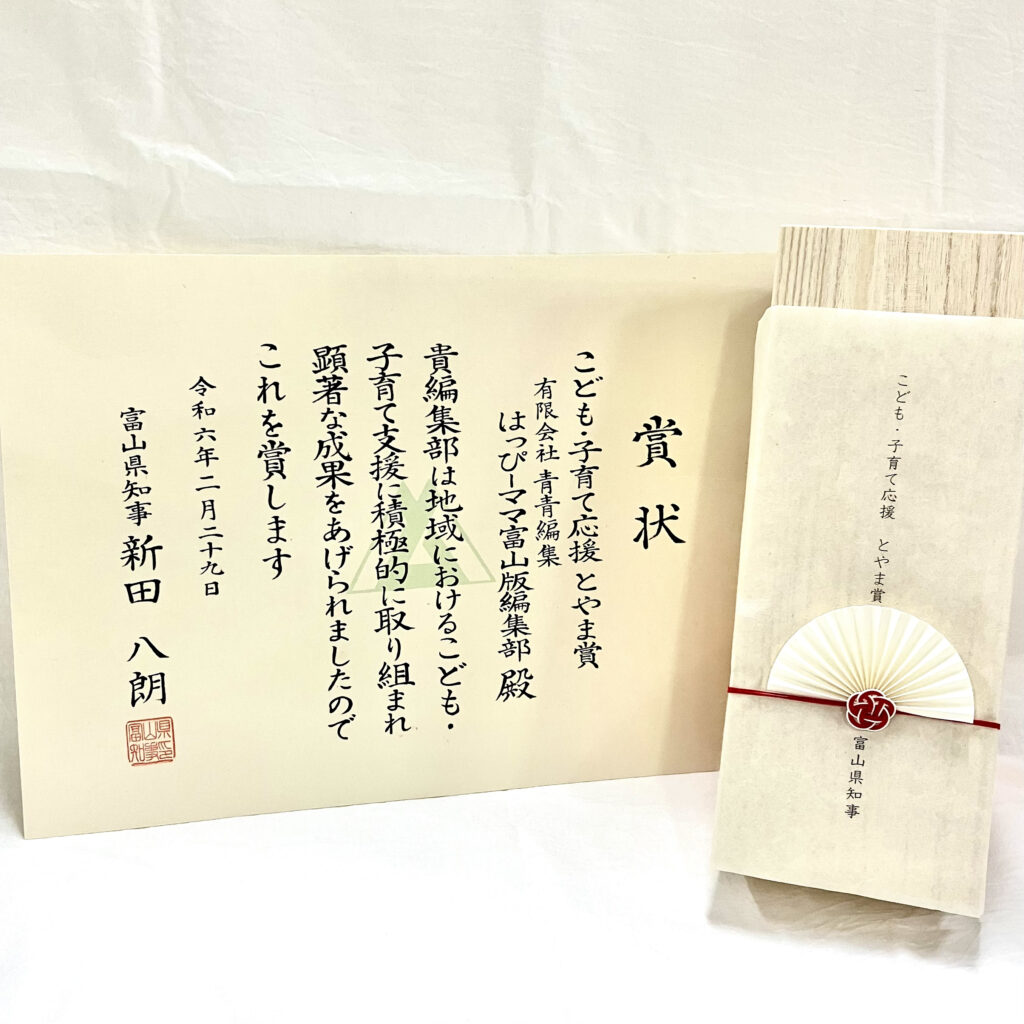 賞状
こども・子育て応援 とやま賞
有限会社 青青編集
はっぴーママ富山版編集部 殿
貴編集部は地域におけるこども・
子育て支援に積極的に取り組まれ
顕著な成果をあげられましたので
これを賞します
令和六年二月二十九日
富山県知事 新田 八朗
富山県知事印
こども・子育て応援 とやま賞
富山県知事